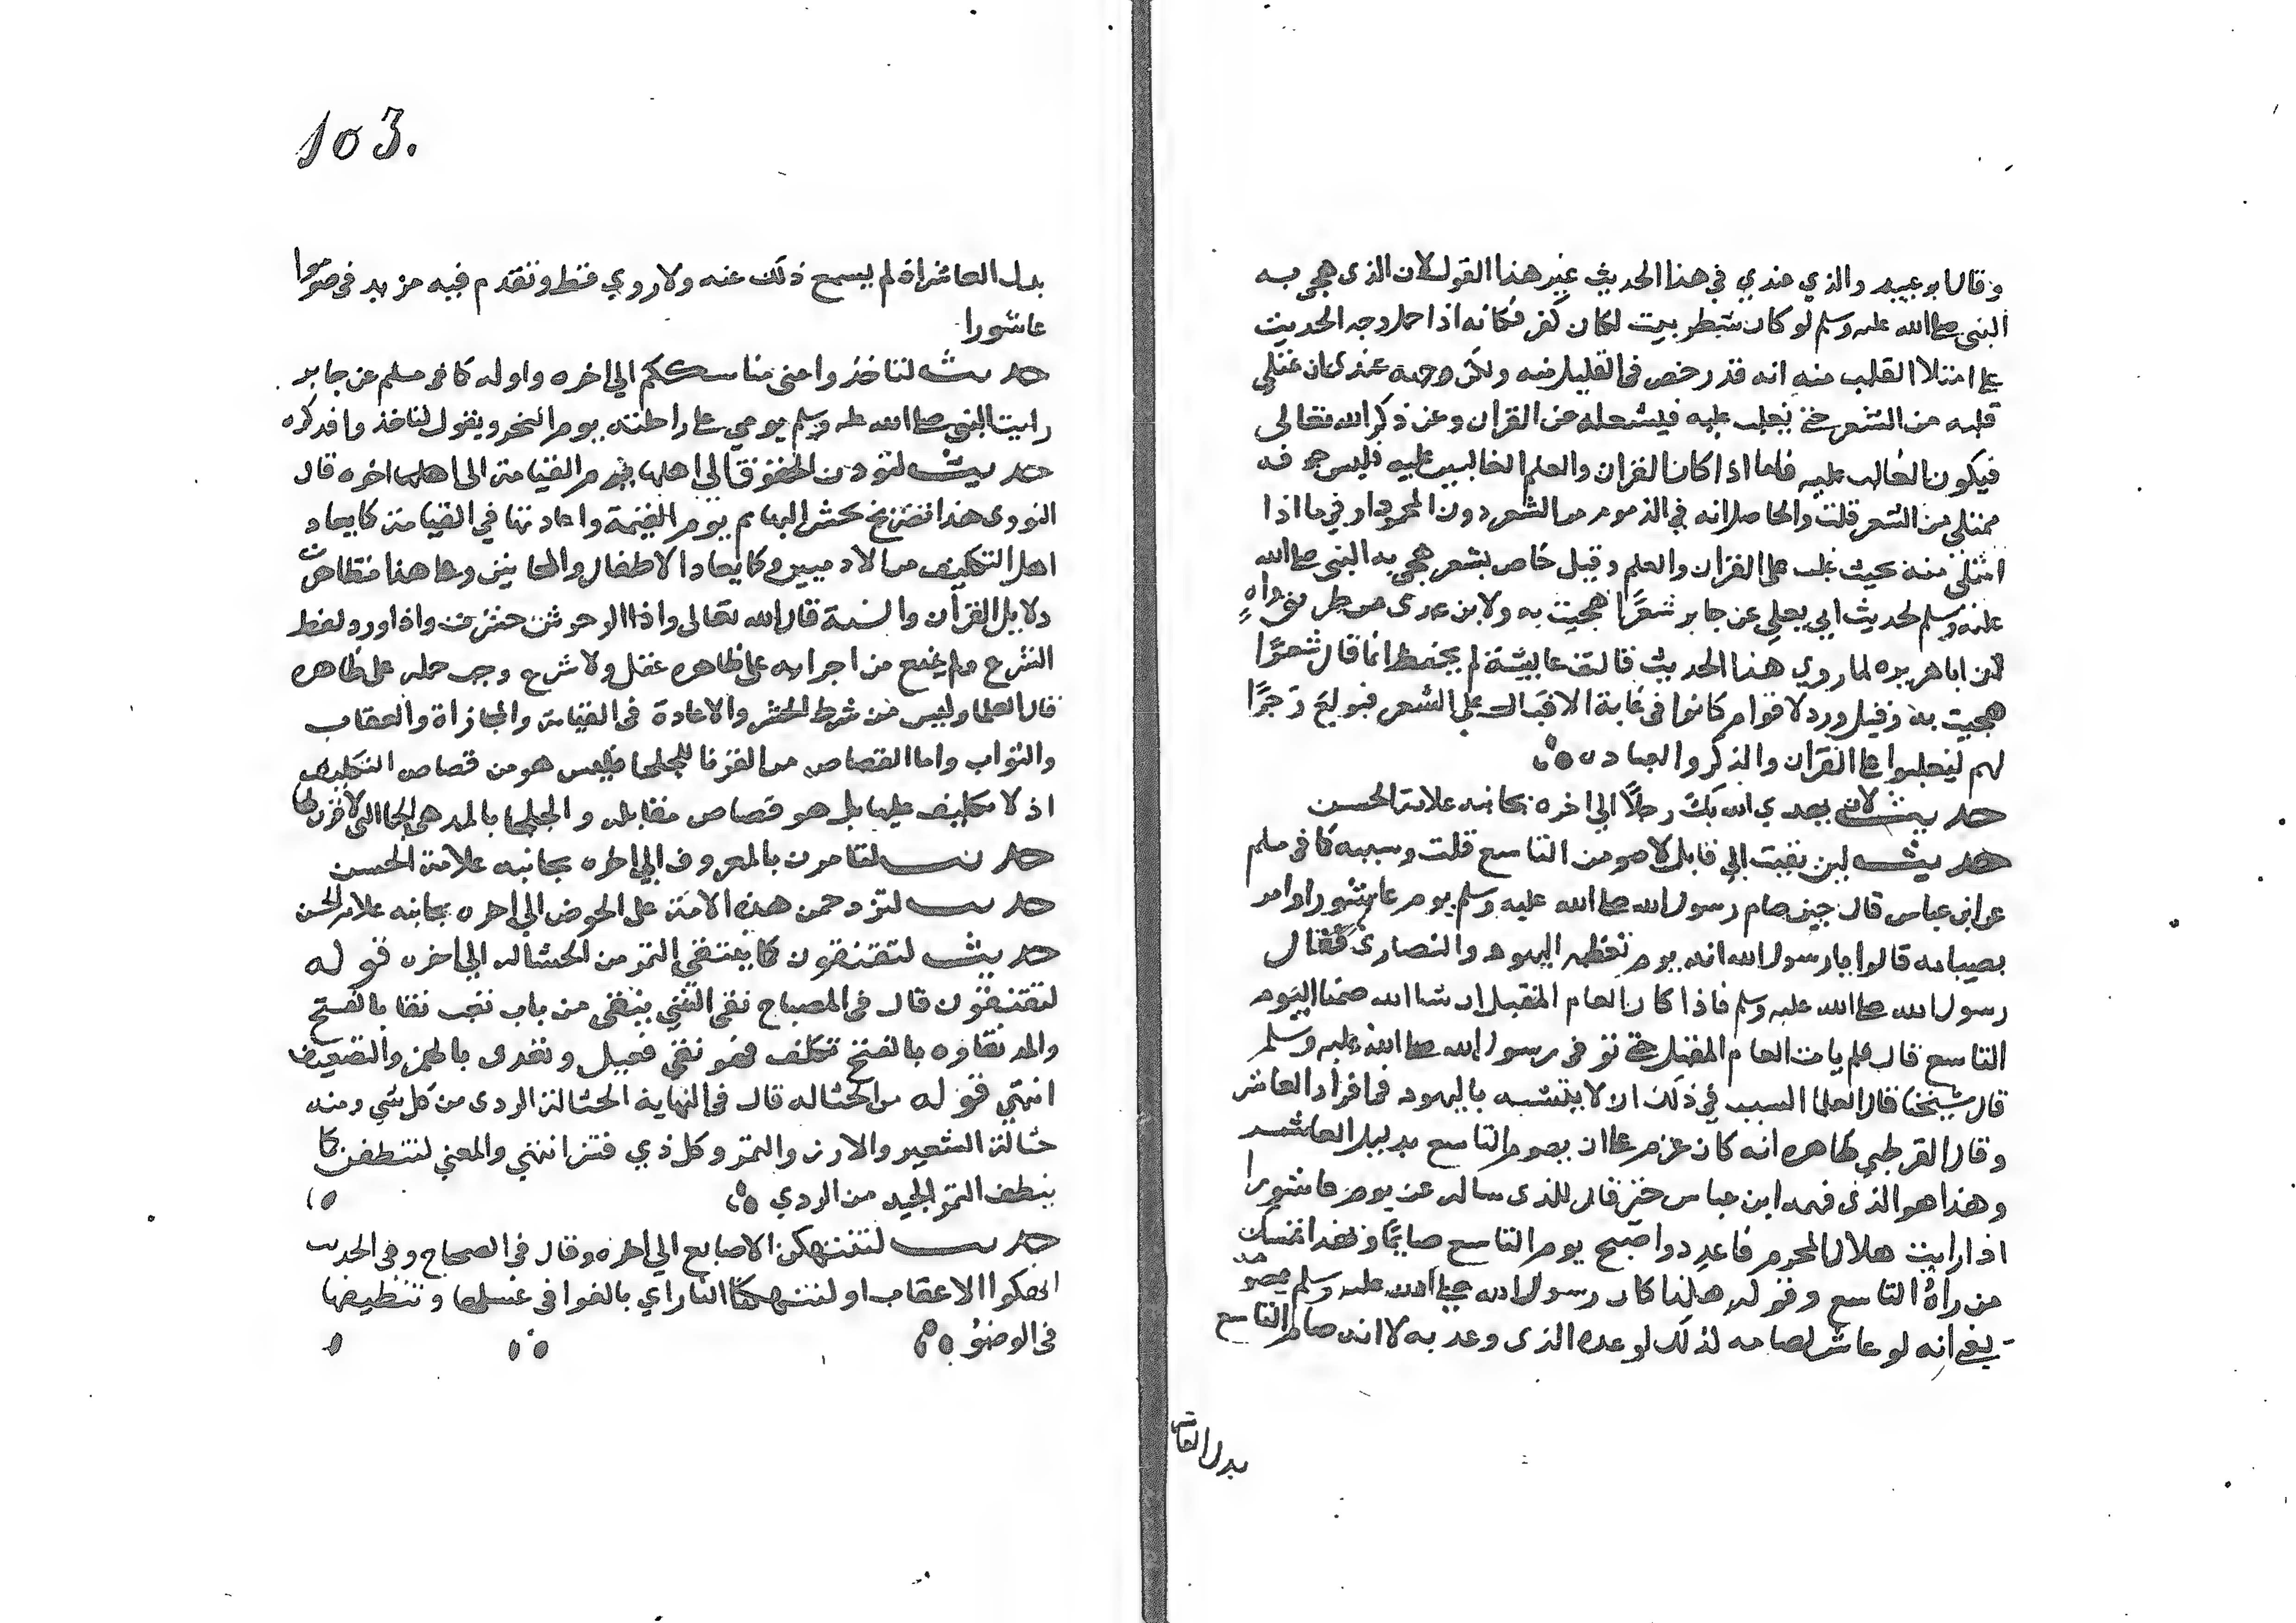 وقال ابو عبيد والذي عندي في هذا الحديث غير هذا القول لان الذي هجي به
النبي صلى الله عليه وسلم لو كان شطر بيت لكان كفر فكانه اذا حمل وجه الحديث
على امتلا القلب منه انه قد رخص في القليل منه ولكن وجهه عندي ان يمتلي
قلبه من الشعر حتى يغلب عليه فيشغله عن القران وعن ذكر الله تعالى
فيكون الغالب عليه فاما اذا كان القران والعلم الغالبين عليه فليس جوفه
ممتلي من الشعر قلت والحاصل انه في المذموم من الشعر دون المحمود او فيما اذا
امتلى منه بحيث غلب على القران والعلم وقيل خاص بشعر هجي به النبي صلى الله
عليه وسلم لحديث ابي يعلي عن جابر شعرًا هجيت به ولابن عدى من طريق واهٍ
ان ابا هريره لما روي هذا الحديث قالت عايشة لم يحفظ انما قال شعرًا
هجيت به وقيل ورد لاقوام كانوا في غاية الاقبال على الشعر فبولغ زجرًا
لهم ليقبلوا على القران والذكر والعباده
حديث لان يهدي الله بك رجلًا الي اخره بجانبه علامة الحسن
حديث لين بقيت الي قابل لاصومن التاسع قلت وسببه كما في مسلم
عن ابن عباس قال حين صام رسول الله صلى الله عليه وسلم يوم عاشورا وامر
بصيامه قالوا يا رسول الله انه يوم تعظمه اليهود والنصارى فقال
رسول الله صلى الله عليه وسلم فاذا كان العام المقبل ان شا الله صمنا اليوم
التاسع قال فلم يات العام المقبل حتى توفى رسول الله صلى الله عليه وسلم
قال شيخنا قال العلما السبب في ذلك ان لا يتشبه باليهود في افراد العاشر
وقال القرطبي ظاهره انه كان عزم على ان يصوم التاسع بدليل العاشر
وهذا هو الذي فهمه ابن عباس حتى قال للذي ساله عن يوم عاشورا
اذا رايت هلال المحرم فاعدد واصبح يوم التاسع صايمًا وبهذا تمسك
من رآهُ التاسع وقوله هكذا كان رسول الله صلى الله عليه وسلم يصومه
يعني انه لو عاش لصامه لذلك لوعده الذى وعد به لا انه صام التاسع
بدل العاشر
103.
بدل العاشر اذ لم يسمع ذلك عنه ولا روي قط وتقدم فيه مزيد في صوموا
عاشورا
حديث لتاخذوا عني مناسككم الي اخره واوله كما في مسلم عن جابر
رايت النبي صلى الله عليه وسلم يومي على راحلته يوم النحر ويقول لتاخذوا فذكره
حديث لتودن الحقوق الي اهلها يوم القيامة الى اهلها اخره قال
النووي هذا تصريح بحشر البهايم يوم القيمة واعادتها في القيامة كما يعاد
اهل التكليف من الادميين وكما يعاد الاطفال والمجانين وعلى هذا تظاهرت
دلايل القرآن والسنة قال الله تعالى واذا الوحوش حشرت واذا ورد لفظ
الشرع ولم يمنع من اجرايه على ظاهره عقل ولا شرع وجب حمله على ظاهره
قال العلما وليس من شرط الحشر والاعادة في القيامة والمجازاة والعقاب
والثواب واما القصاص من القرنا للجلحا فليس هو من قصاص التكليف
اذ لا تكليف عليها بل هو قصاص مقابله والجلحا بالمد هي الجما التي لا قرن لها
حديث لتامرن بالمعروف الي اخره بجانبه علامة الحسن
حديث لتزدحمن هذه الامة على الحوض الي اخره بجانبه علامة الحسن
حديث لتنتقون كما ينتقي التمر من الحثاله الي اخره قوله
لتنتقون قال في المصباح نقي الشي ينقى من باب تعب نقا بالفتح
والمد نقاوه بالفتح تنظف فهو نقي فعيل ويعدى بالهمز والتضعيف
انتهي قوله من الحثاله قال في النهاية الحثالة الردى من كل شي ومنه
حثالة الشعير والارز والتمر وكل ذي قشر انتهي والمعني لتنظفن كما
ينظف التمر الجيد من الردي
حديث لتنتهكن الاصابع الي اخره وقال في الصحاح وفي الحديث
انهكوا الاعقاب او لتنهكنها النار اي بالغوا في غسلها وتنظيفها
في الوضوُ